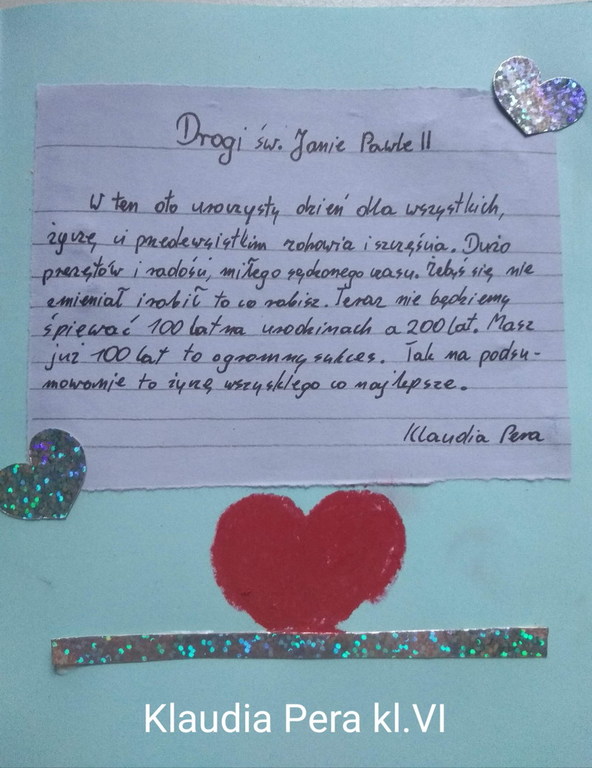 Drogi św. Janie Pawle II
W ten oto uroczysty dzień dla wszystkich,
życzę ci przedewsistkim zdrowia i szczęścia. Dużo
prezętów i radości, miłego sędzonego czasu. Żebyś się nie
zmieniał i robił to co robisz. Teraz nie będziemy
śpiewać 100 lat na urodzinach a 200 lat. Masz
już 100 lat to ogromny sukces. Tak na podsu-
mowanie to życzę wszyskiego co najlepsze.
Klaudia Pera
Klaudia Pera kl.VI